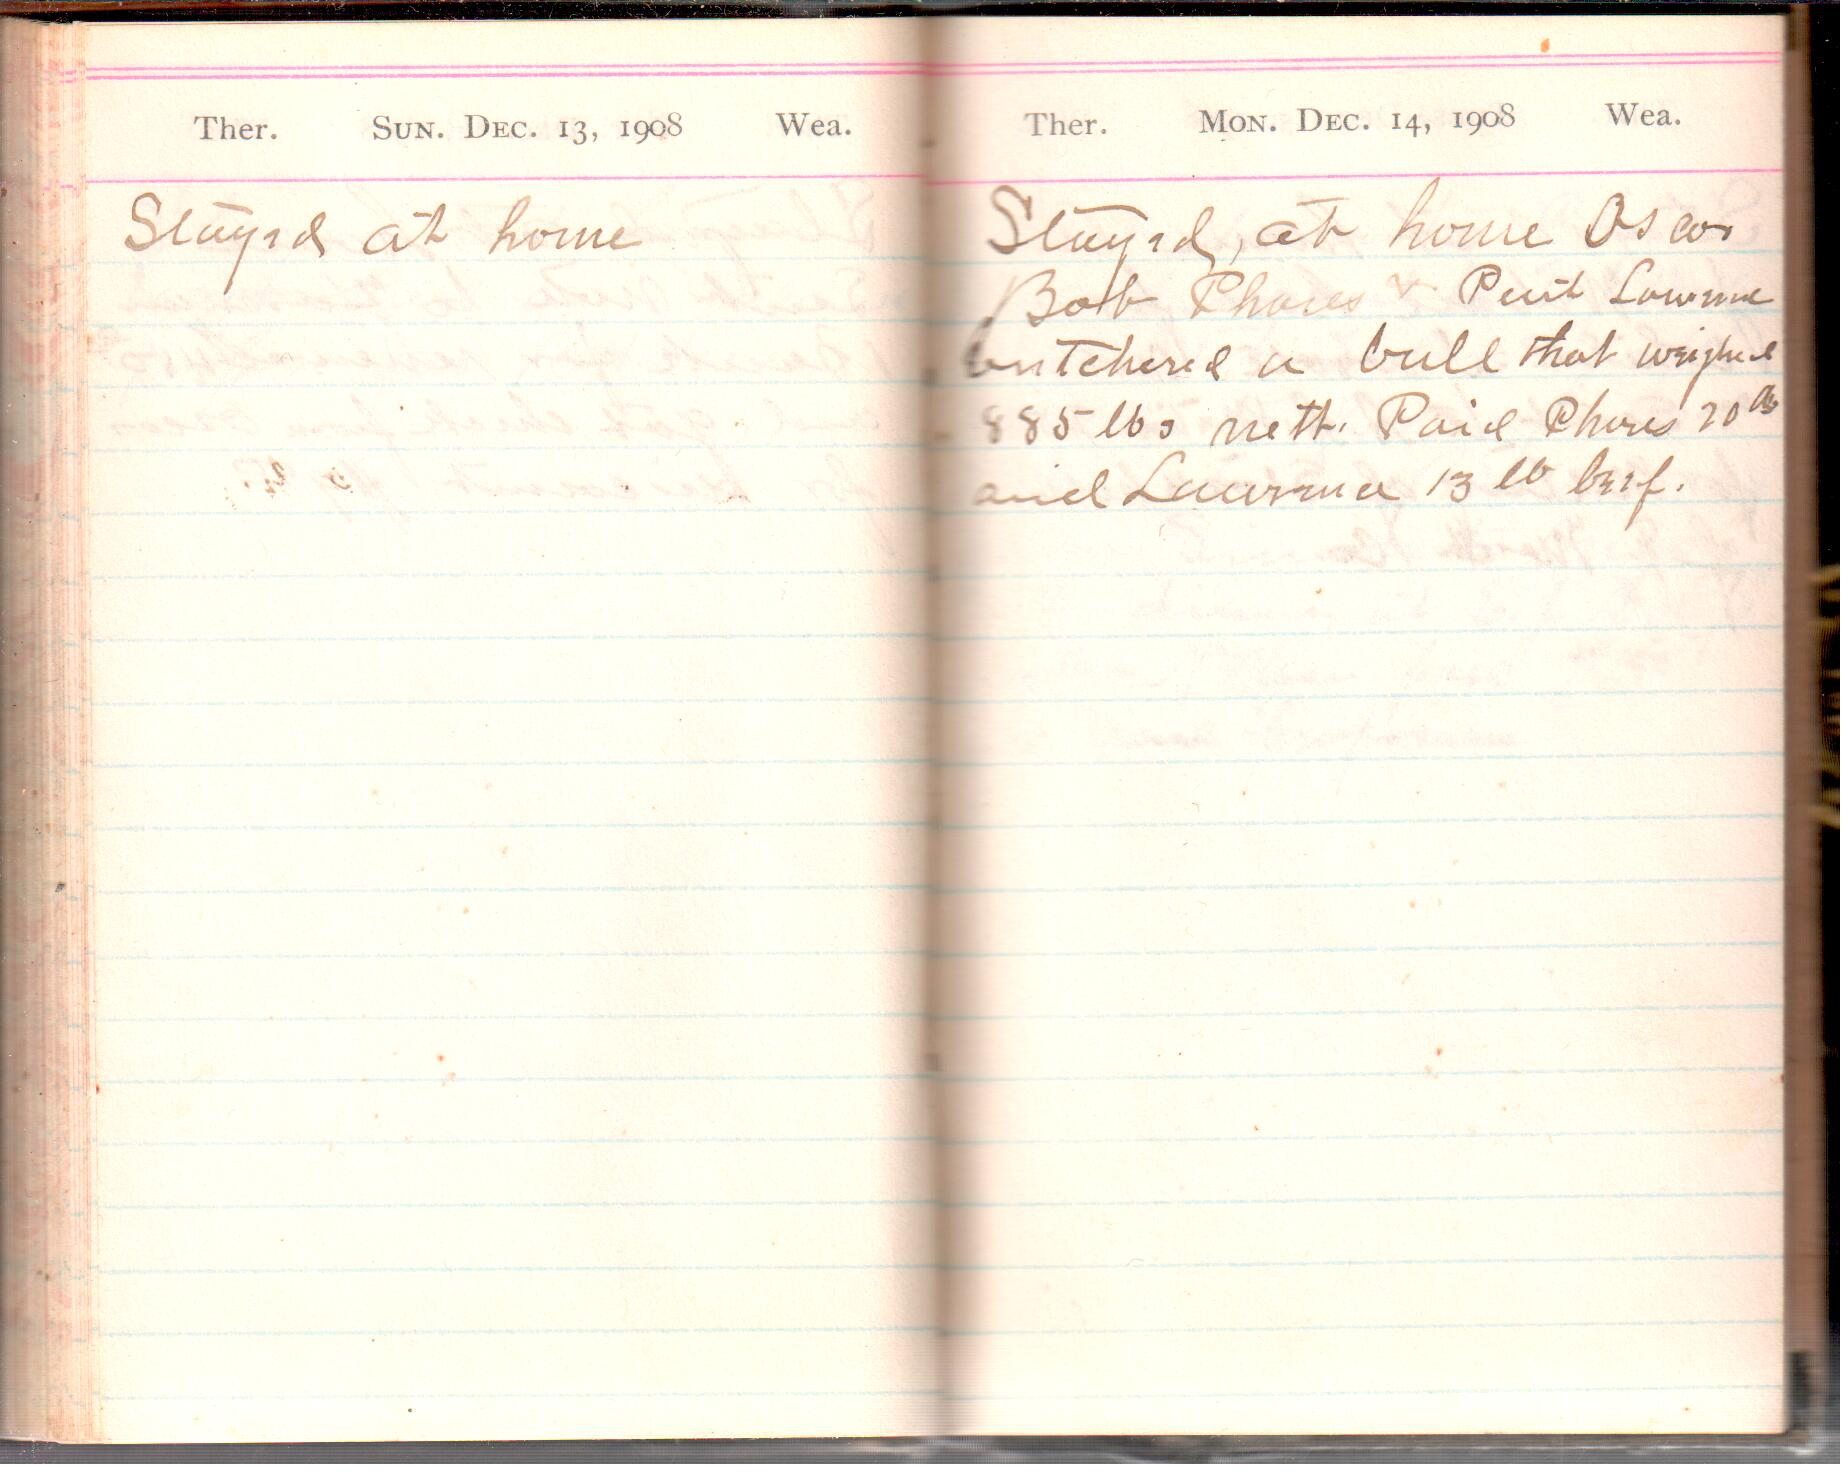 Ther. Sun. Dec. 13, 1908 Wea.
Stayed at home
Ther. Mon. Dec. 14, 1908 Wea.
Stayed, at home Oscar
Bob Phares & Lawrence
butchered a bull that weighed
885 lbs nett. Paid Phares 20
and Lawrence 13 lb beef.